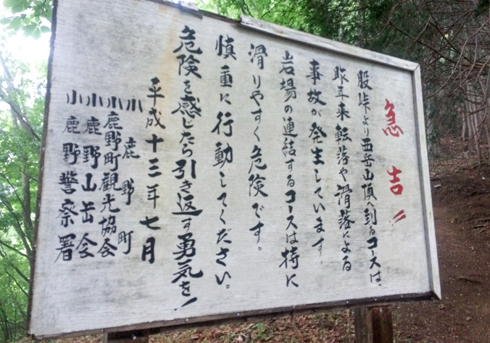 急告!!
股峠より西岳山頂へ到るコースは、
昨年来転落や滑落による
事故が発生しています
岩場の連続するコースは特に
滑りやすく危険です。
慎重に行動してください。
危険を感じたら引き返す勇気を!
平成十三年七月
小鹿野町
小鹿野町観光協会
小鹿野山岳会
小鹿野警察署